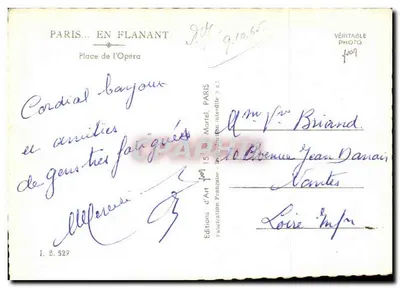 PARIS... EN FLANANT
Place de l'Opéra
VÉRITABLE
PHOTO
Cordial bonjour
et amitiés
de gens très fatigués
Mme Vve Briand
10 Avenue Jean Danais
Nantes
Loire Infre
Editions d'Art 15, R. Martel, PARIS
Fabrication Française
I. B. 527